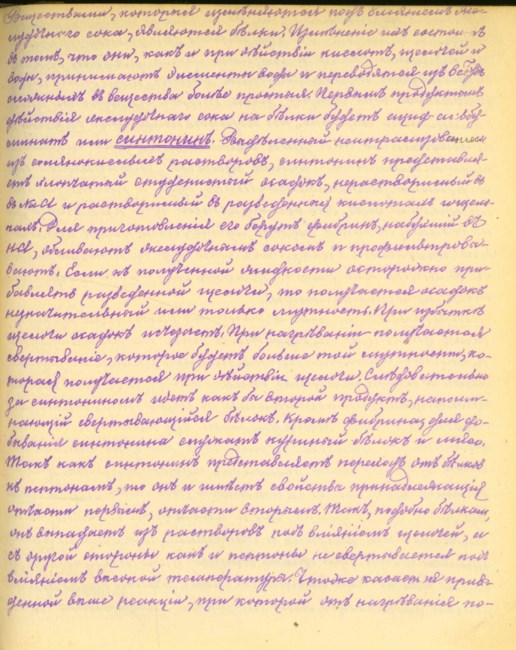 Веществами, которыя измѣняются подъ вліяніемъ же-
лудочнаго сока, являются бѣлки. Измѣненіе ихъ состоитъ
въ томъ, что они, какъ и при дѣйствіи кислотъ, щелочей и
воды, принимаютъ элементы воды и переводятся изъ
въ вещества болѣе простыя. Первымъ продуктомъ
дѣйствія желудочнаго сока на бѣлки будетъ ацид-альбу-
минатъ или синтонинъ. Выдѣленный нейтрализованіемъ
изъ солянокислыхъ растворовъ, синтонинъ представля-
етъ хлопчатый студенистый осадокъ, нерастворимый въ
въ NaCl и растворимый въ разведенныхъ кислотахъ и щело-
чахъ. Для приготовленія его берутъ фибринъ, набухшій въ
HCl, обливаютъ желудочнымъ сокомъ и профильтровы-
ваютъ. Если къ полученной жидкости осторожно при-
бавлять разведенной щелочи, то получается осадокъ
незначительный или только мутность. При избыткѣ
щелочи осадокъ исчезаетъ. При нагрѣваніи получается
свертываніе, которое будетъ больше той мутности, ко-
торая получается при дѣйствіи щелочи. Слѣдовательно
за синтониномъ идетъ какъ бы второй продуктъ, напоми-
нающій свертывающійся бѣлокъ. Кромѣ фибрина, для до-
быванія синтонина служатъ куриный бѣлокъ и мясо.
Такъ какъ синтонинъ представляетъ переходъ отъ бѣлковъ
къ пептонамъ, то онъ и имѣетъ свойства принадлежащія
отчасти первымъ, отчасти вторымъ. Такъ, подобно бѣлкамъ,
онъ выпадаетъ изъ растворовъ подъ вліяніемъ щелочей, и
съ другой стороны какъ и пептоны не свертывается подъ
вліяніемъ высокой температуры. Что же касается приве-
денной выше реакціи, при которой отъ нагрѣванія по-